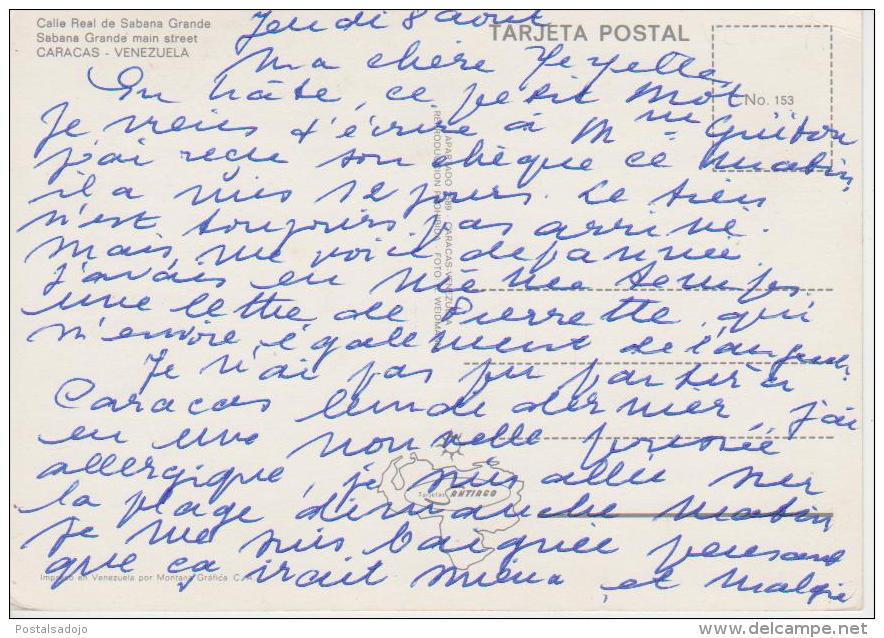 Calle Real de Sabana Grande
Sabana Grande main street
CARACAS - VENEZUELA
TARJETA POSTAL
No. 153
Jeudi 8 août
Ma chère
En hâte, ce petit mot
Je viens d'écrire à Mme
j'ai reçu son chèque ce matin,
il a mis 12 jours. Le tien
n'est toujours pas arrivé.
Mais, me voici dépannée.
J'avais en même temps
une lettre de Pierrette, qui
m'envoie également de l'argent.
Je n'ai pas pu partir à
Caracas lundi dernier, j'ai
eu une nouvelle poussée
allergique, je suis allée sur
la plage dimanche matin
je me suis baignée pensant
que ça irait mieux, et malgré
APARTADO CARACAS-VENEZUELA
REPRODUCCION PROHIBIDA - FOTO: WEIDMANN
Tarjetas ANTIAGO
Impreso en Venezuela por Montana Gráfica C.A.
Postalsadojo
www.delcampe.net